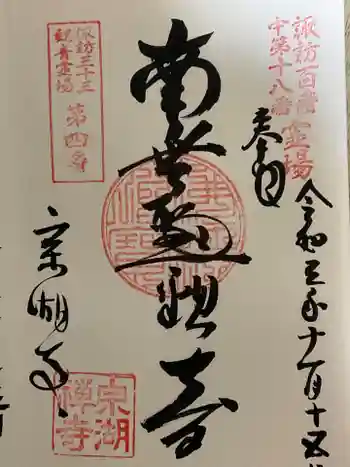 諏訪百番霊場
中第十八番
奉拝
令和五年十一月十五
南無聖観音
諏訪三十三
観音霊場
第四番
宗湖寺
宗湖
禅寺